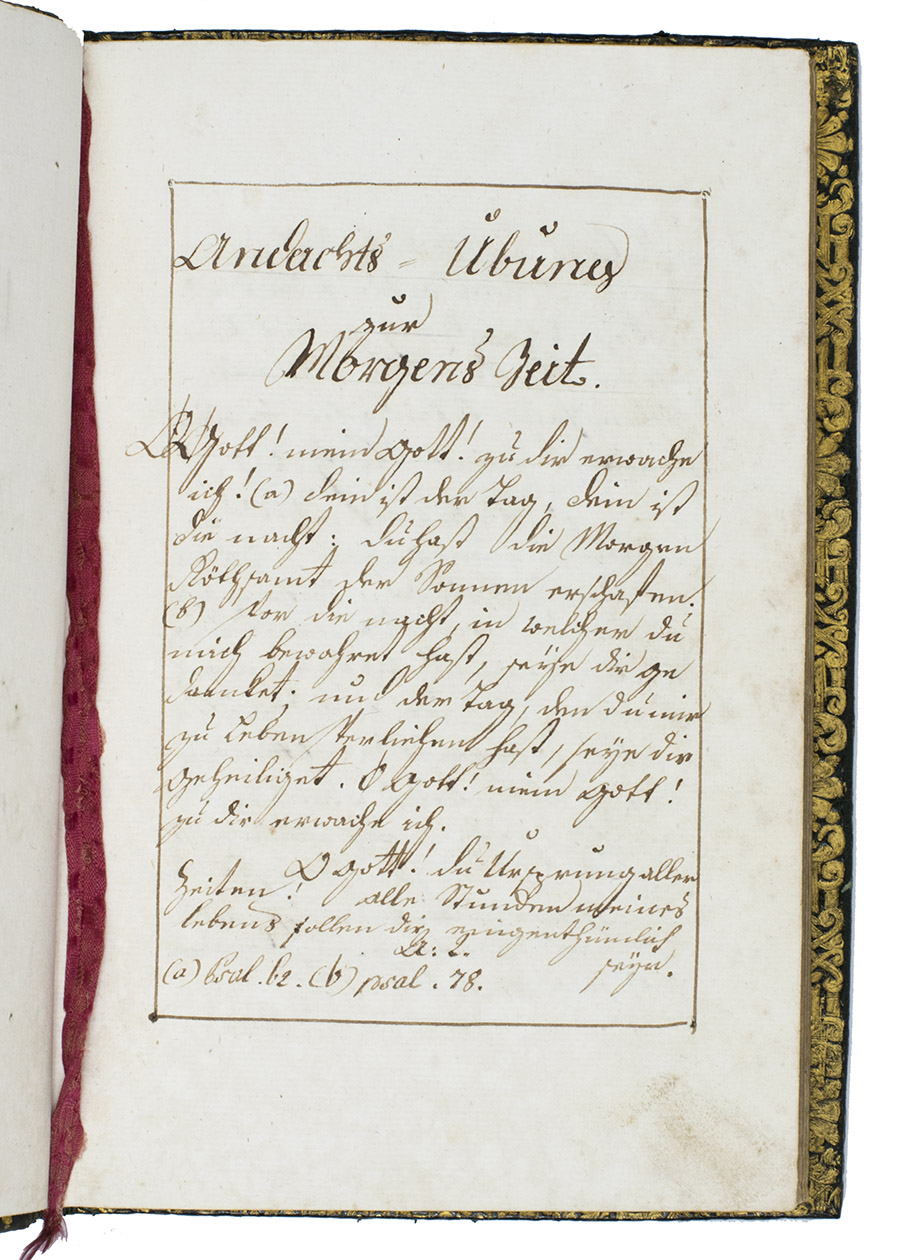 Andachts = Übung
zur
Morgens Zeit.
O Gott! mein Gott! zu dir erwache
ich! (a) dein ist der Tag, dein ist
die nacht: du hast die Morgen
Röth samt der Sonnen erschaffen.
(b) Vor die nacht, in welcher du
mich bewahret hast, seÿe dir ge
danket; und der Tag, den du mir
zu leben verliehen hast, seÿe dir
geheiliget. O Gott! mein Gott!
zu dir erwache ich.
O Gott! du Ursprung aller
Zeiten! alle Stunden meines
lebens sollen dir eingenthümlich
seÿn.
A: 2.
(a) Psal. 62. (b) psal. 78.